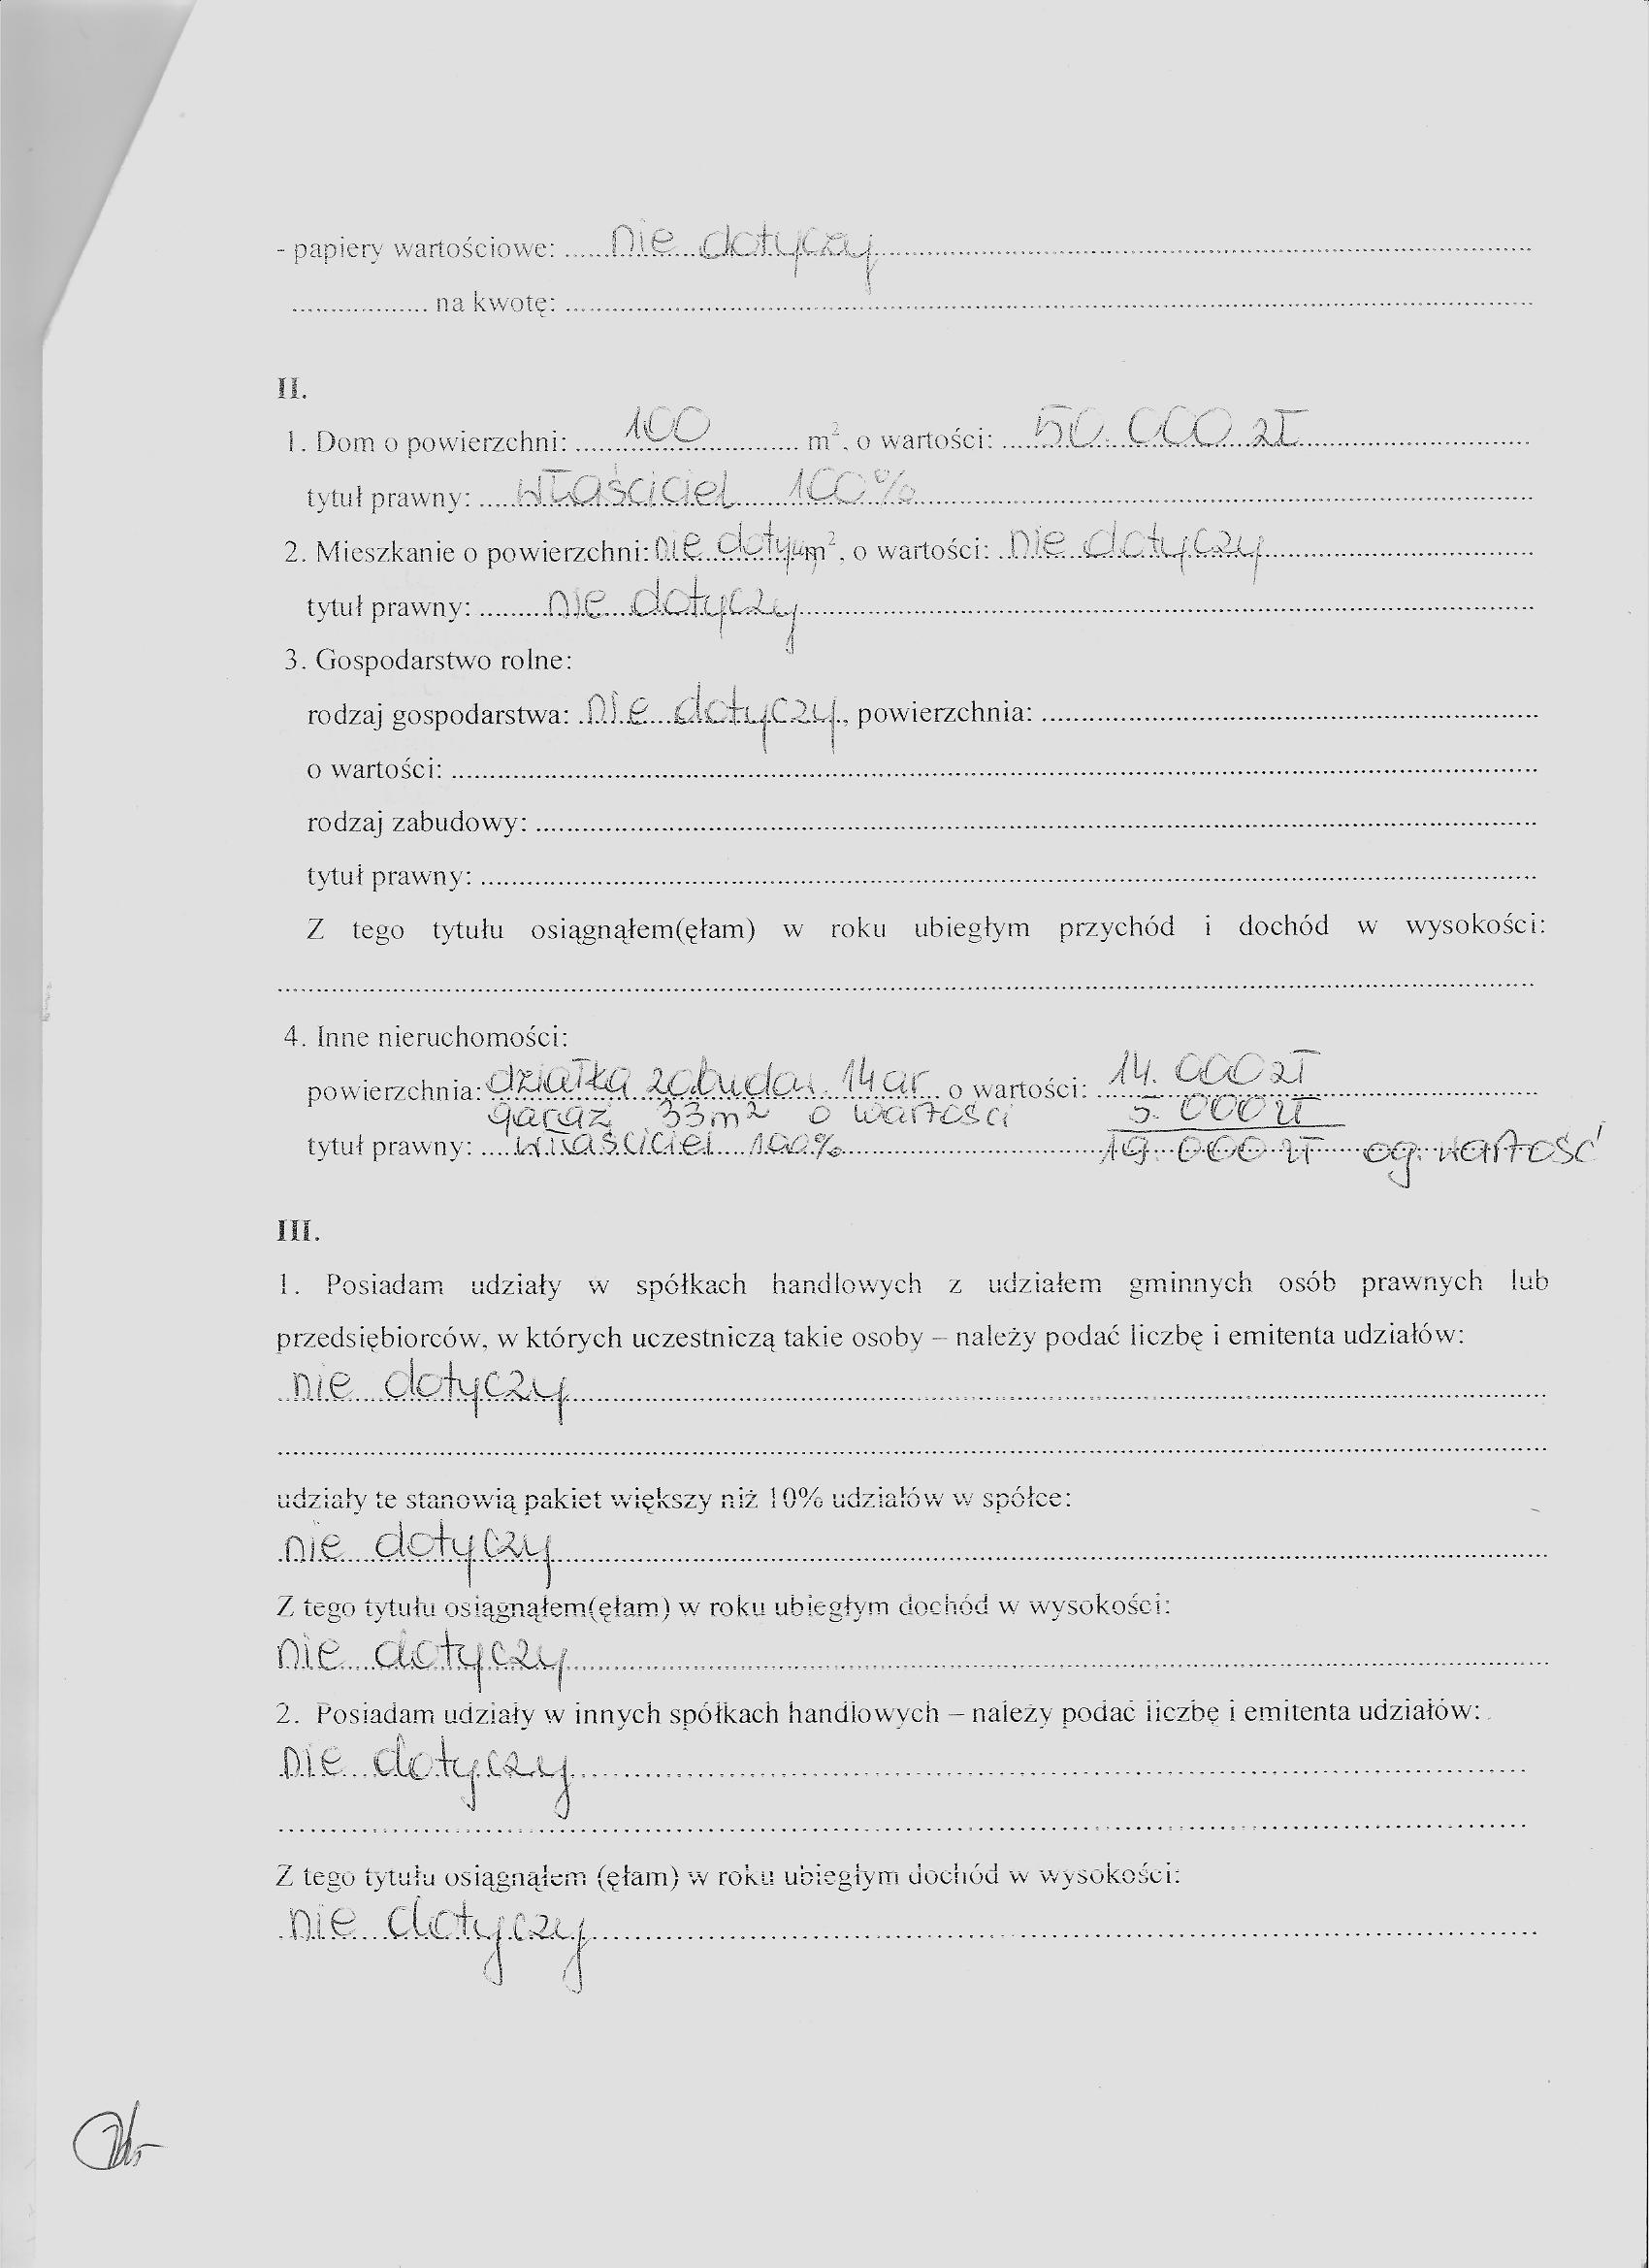 - papiery wartościowe: ......nie dotyczy......
.................. na kwotę: ......
II.
1. Dom o powierzchni: ......100...... m², o wartości: ....50.000 zł......
tytuł prawny: .....właściciel 100%......
2. Mieszkanie o powierzchni: nie dotycz m², o wartości: ..nie dotyczy......
tytuł prawny: .........nie dotyczy......
3. Gospodarstwo rolne:
rodzaj gospodarstwa: .nie dotyczy., powierzchnia: ......
o wartości: ......
rodzaj zabudowy: ......
tytuł prawny: ......
Z tego tytułu osiągnąłem(ęłam) w roku ubiegłym przychód i dochód w wysokości:
......
4. Inne nieruchomości:
powierzchnia: działka zabudow. 14 ar o wartości: 14.000 zł
garaż 33 m² o wartości 5.000 zł
tytuł prawny: ....właściciel 100%...... 19.000 zł og. wartość
III.
1. Posiadam udziały w spółkach handlowych z udziałem gminnych osób prawnych lub
przedsiębiorców, w których uczestniczą takie osoby – należy podać liczbę i emitenta udziałów:
nie dotyczy......
......
udziały te stanowią pakiet większy niż 10% udziałów w spółce:
nie dotyczy......
Z tego tytułu osiągnąłem(ęłam) w roku ubiegłym dochód w wysokości:
nie dotyczy......
2. Posiadam udziały w innych spółkach handlowych – należy podać liczbę i emitenta udziałów:
nie dotyczy......
......
Z tego tytułu osiągnąłem (ęłam) w roku ubiegłym dochód w wysokości:
nie dotyczy......